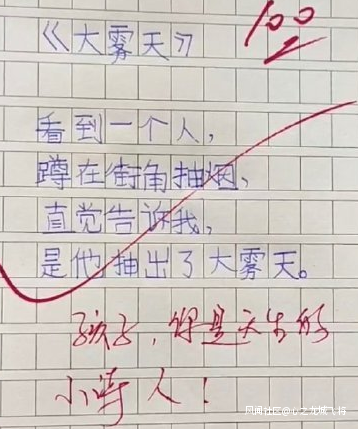 《大雾天》
100
看到一个人，
蹲在街角抽烟，
直觉告诉我，
是他抽出了大雾天。
孩子，你是天生的
小诗人！